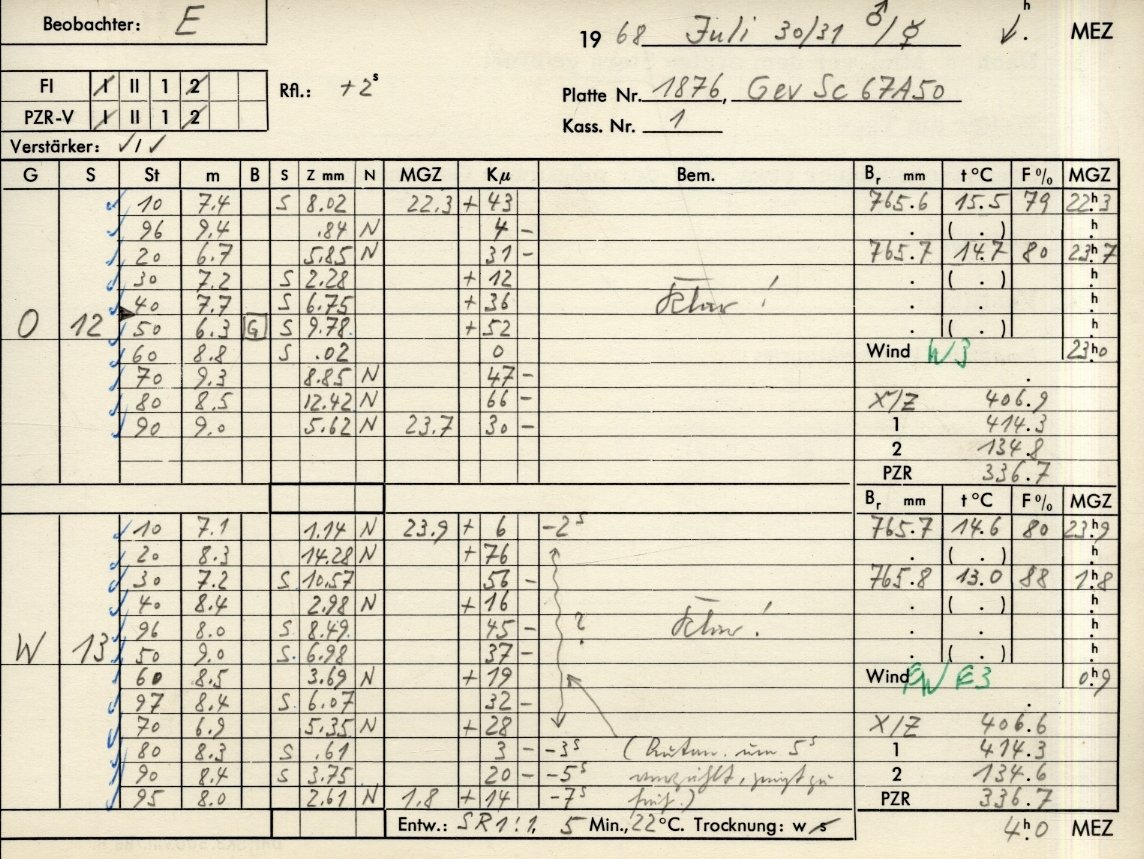 Beobachter: E
19 68 Juli 30/31 ♂/☿ h . MEZ
FI I II 1 2
Rfl.: +2s
Platte Nr. 1876, Gev Sc 67A50
PZR-V I II 1 2
Kass. Nr. 1
Verstärker: √ 1 √
G S St m B S Z mm N MGZ Kμ Bem. Br mm t °C F % MGZ
10 7.4 S 8.02 22.3 + 43 765.6 15.5 79 22h3
96 9.4 .84 N 4 - . ( . ) h
20 6.7 5.85 N 31 - 765.7 14.7 80 23h7
30 7.2 S 2.28 + 12 . ( . ) h
40 7.7 S 6.75 + 36 Klar! . . h
O 12 50 6.3 G S 9.78 + 52 . ( . ) h
60 8.8 S .02 0 Wind W3 23h0
70 9.3 8.85 N 47 - .
80 8.5 12.42 N 66 - X/Z 406.9
90 9.0 5.62 N 23.7 30 - 1 414.3
2 134.8
PZR 336.7
Br mm t °C F % MGZ
10 7.1 1.14 N 23.9 + 6 -2s 765.7 14.6 80 23h9
20 8.3 14.28 N + 76 . ( . ) h
30 7.2 S 10.57 56 - 765.8 13.0 88 1h8
40 8.4 2.98 N + 16 ? . ( . ) h
96 8.0 S 8.49 45 - Klar! . . h
W 13 50 9.0 S 6.98 37 - . ( . ) h
60 8.5 3.69 N + 19 Wind E3 0h9
97 8.4 S 6.07 32 - .
70 6.9 5.35 N + 28 X/Z 406.6
80 8.3 S .61 3 - -3s ( um 5s 1 414.3
90 8.4 S 3.75 20 - -5s 2 134.6
95 8.0 2.61 N 1.8 + 14 -7s PZR 336.7
Entw.: SR1:1, 5 Min., 22°C. Trocknung: w s 4h0 MEZ